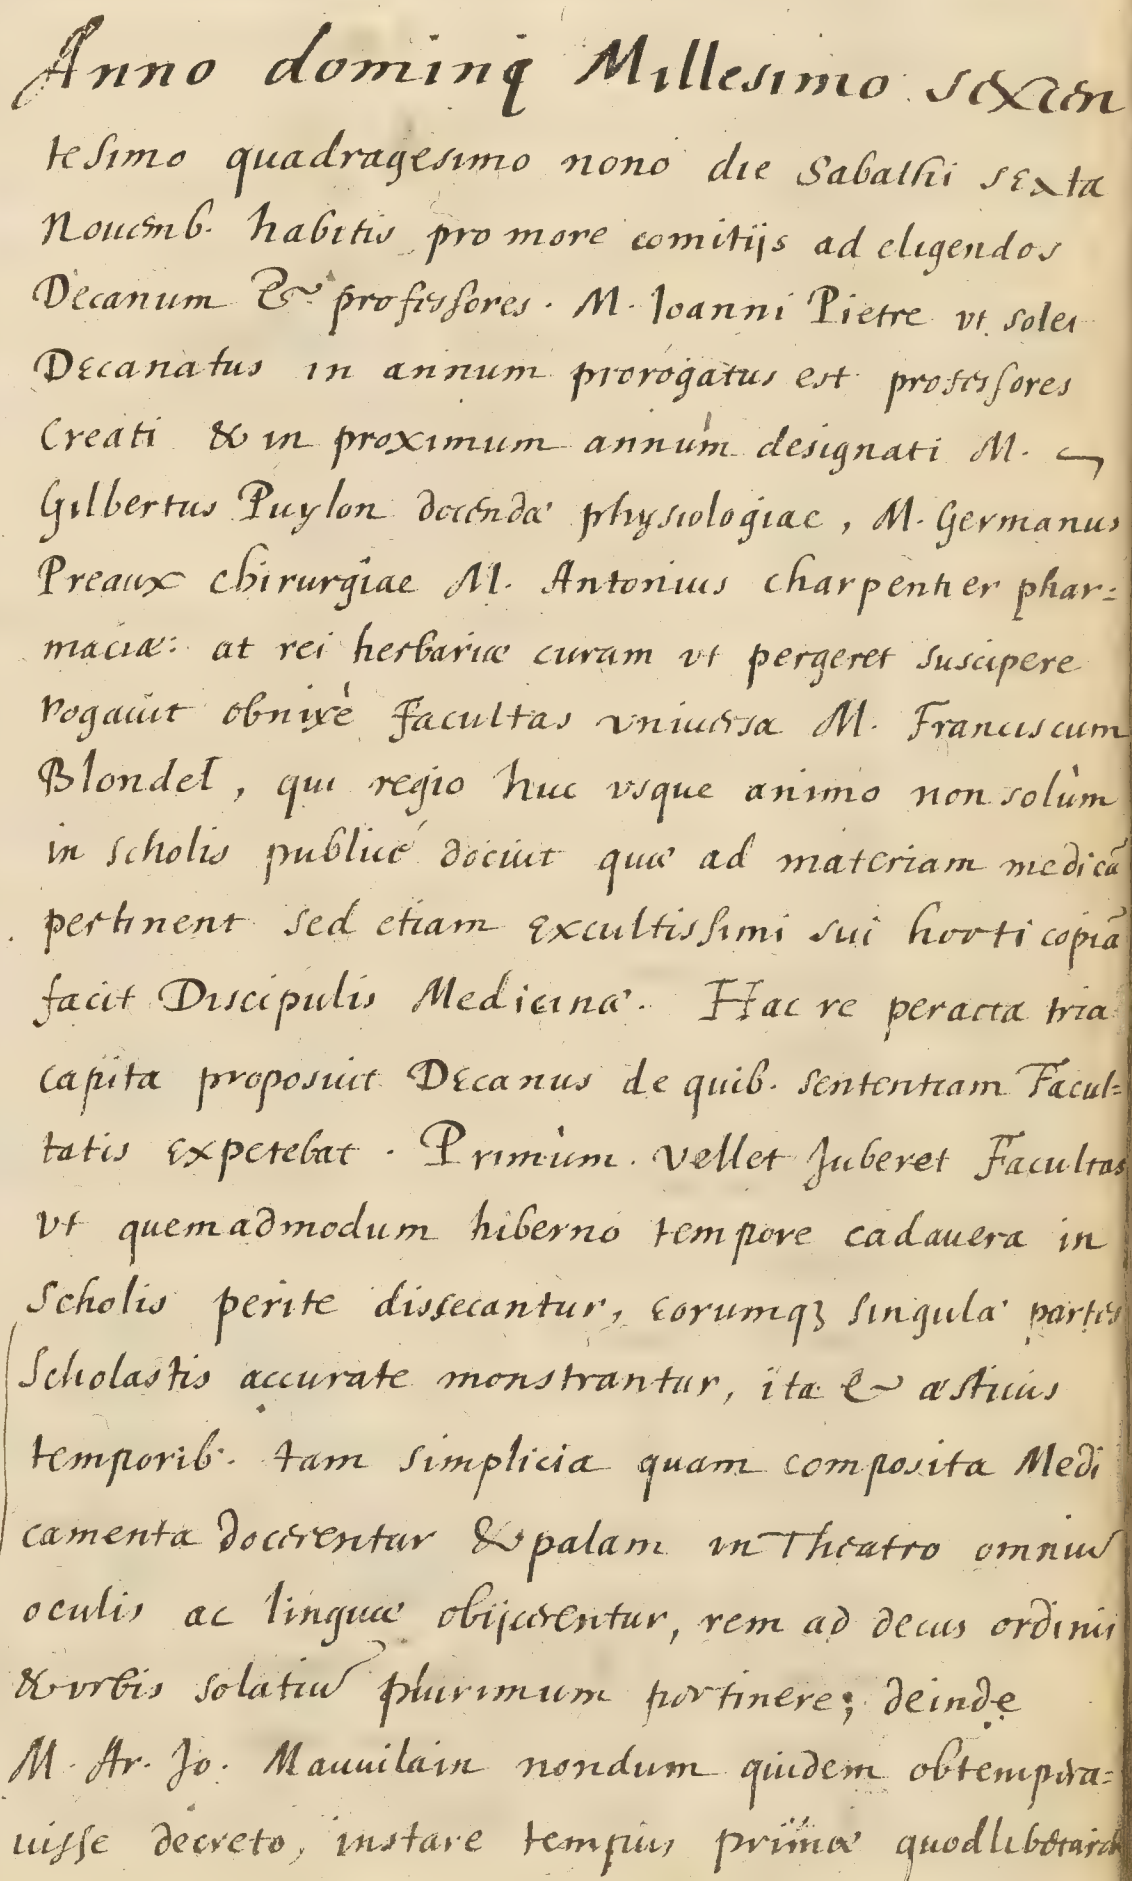 Anno dominĳ Millesimo sexcen
tesimo quadragesimo nono die Sabathi sexta
Nouemb. habitis pro more comitijs ad eligendos
Decanum & professores. M. Ioanni Pietre vt solet
Decanatus in annum prorogatus est professores
Creati & in proximum annum designati M.
Gilbertus Puylon docendæ physiologiae, M. Germanus
Preaux chirurgiae M. Antonius charpentier phar=
maciæ: at rei herbariæ curam vt pergeret suscipere
rogauit obnixè Facultas vniuersa M. Franciscum
Blondel, qui regio huc vsque animo non solùm
in scholis publicé docuit quæ ad materiam medicā
pertinent sed etiam excultissimi sui horti copiā
facit Discipulis Medicinæ. Hac re peracta tria
capita proposuit Decanus de quib. sententiam Facul=
tatis expetebat. Primùm. vellet Juberet Facultas
vt quemadmodum hiberno tempore cadauera in
Scholis perite dissecantur, eorumqꝫ singulæ partes
Scholastis accurate monstrantur, ita & æstiuis
temporib. tam simplicia quam composita Medi
camenta docerentur & palam in Theatro omniū
oculis ac linguæ obijcerentur, rem ad decus ordinis
& vrbis solatiū plurimum pertinere; deinde
M. Ar. Jo. Mauuilain nondum quidem obtempera=
uisse decreto, instare tempus primæ quodlibetariæ